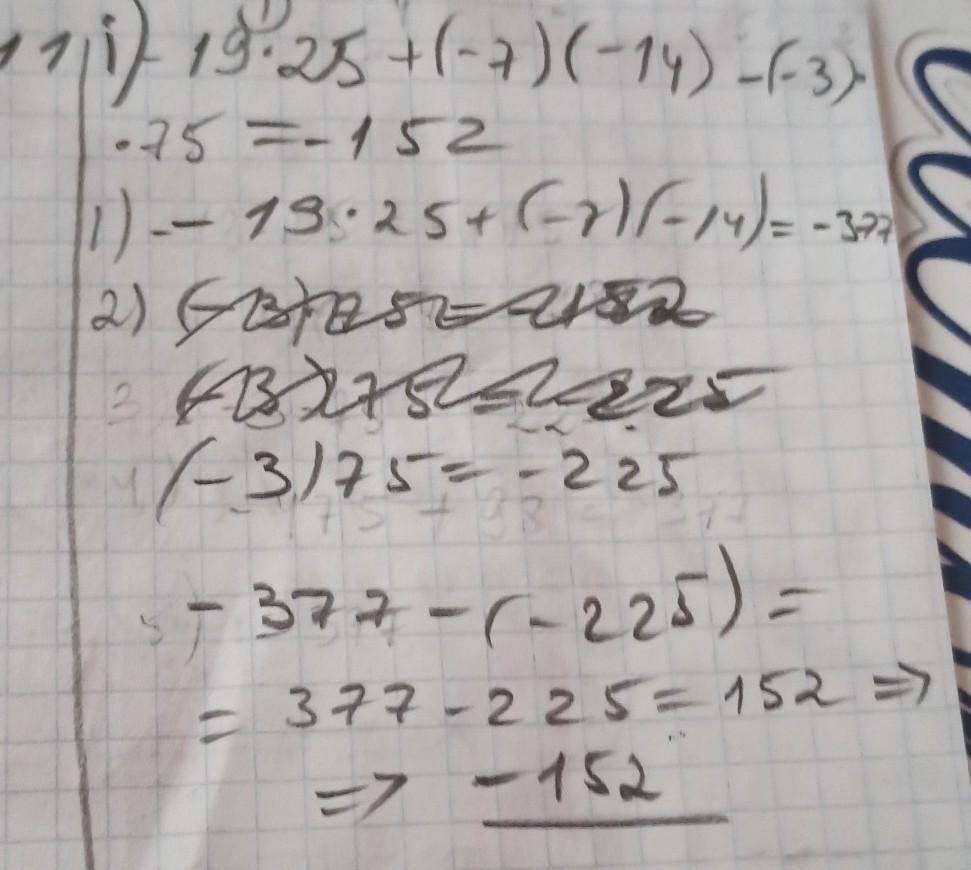 11, i) - 19·25 + (-7)(-14) - (-3)·
·75 = -152
1) - 19·25 + (-7)(-14) = -377
2)
(-3)75 = -225
- 377 - (-225) =
= 377 - 225 = 152 =>
=> -152